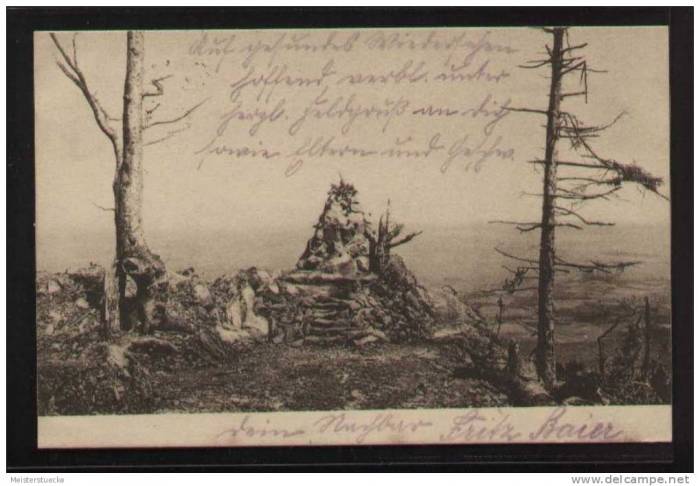 Auf gesundes Wiedersehen
hoffend, verbl. unter
herzl. Feldgruß an dich
sowie Eltern und Geschw.
dein Nachbar Fritz Baier
Meisterstuecke
delcampe.net